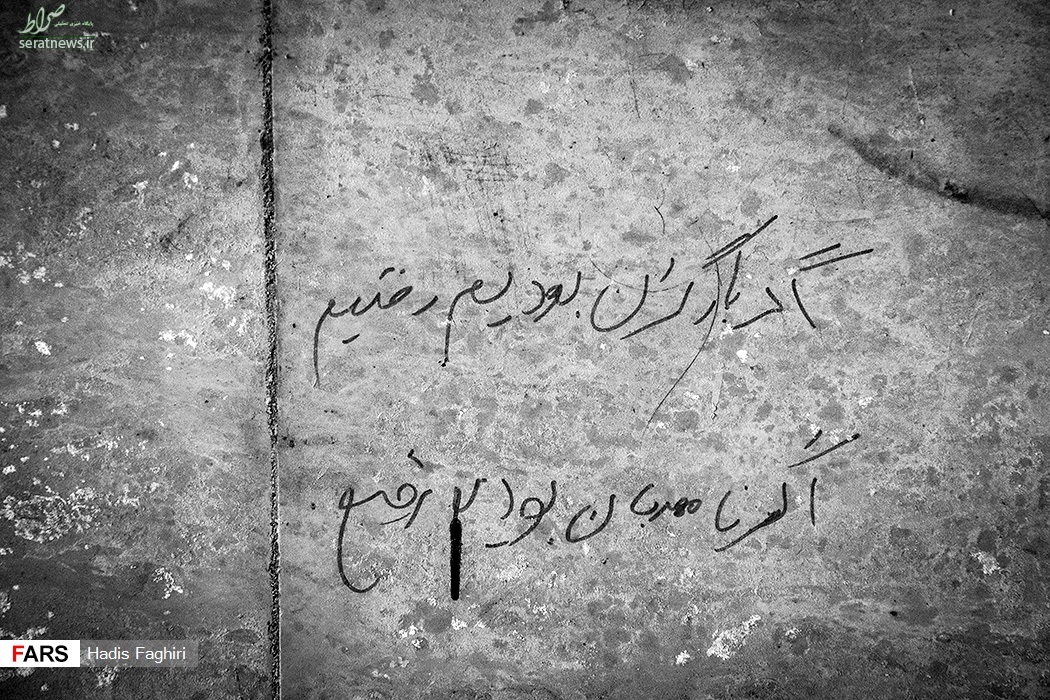 صراط
پایگاه خبری تحلیلی
seratnews.ir
اگر بار گران بودیم رفتیم .
اگر نا مهربان بودیم رفتیم .
FARS Hadis Faghiri